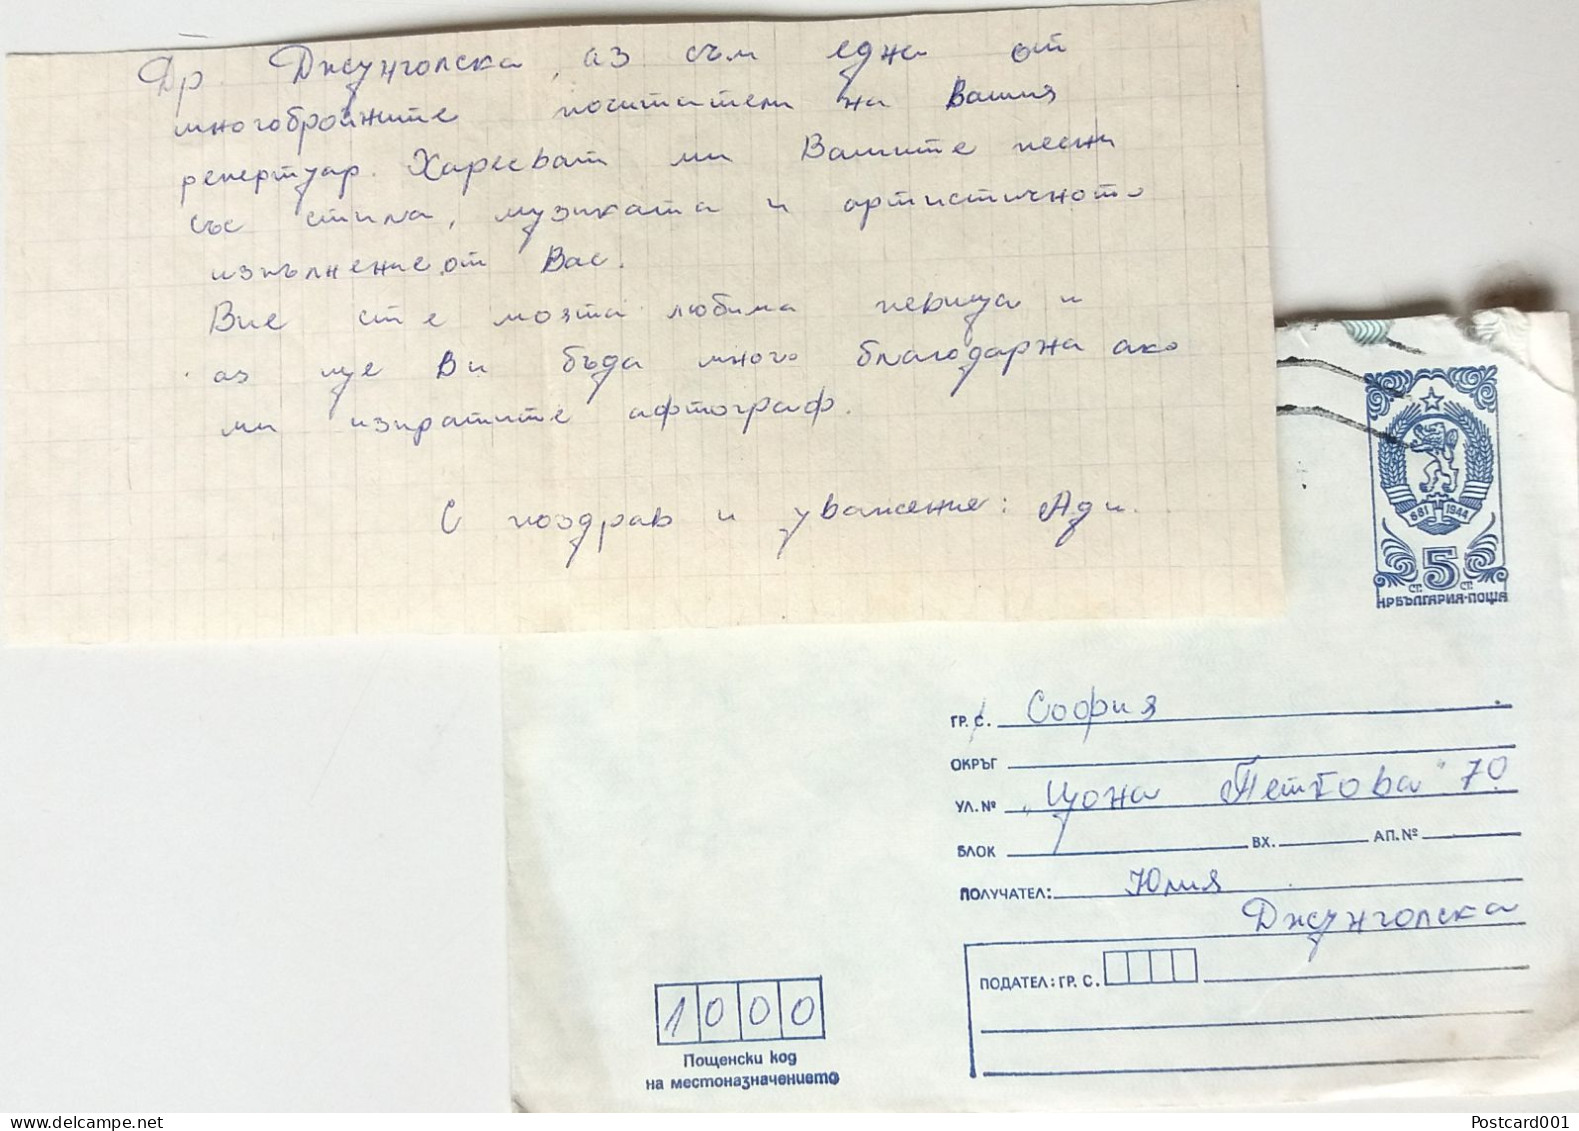 Др. Джунголска, аз съм една от
многобройните почитатели на Вашия
репертуар. Харесват ми Вашите песни
със стила, музиката и артистичното
изпълнение от Вас.
Вие сте моята любима певица и
аз ще Ви бъда много благодарна ако
ми изпратите афтограф.
С поздрав и уважение: Ади.
681 1944
СТ. 5 СТ.
НРБЪЛГАРИЯ·ПОЩА
ГР. С. София
ОКРЪГ
УЛ. № "Цона Петкова" 70
БЛОК ВХ. АП. №
ПОЛУЧАТЕЛ: Юлия
Джунголска
ПОДАТЕЛ: ГР. С.
1000
Пощенски код
на местоназначението
Postcard001